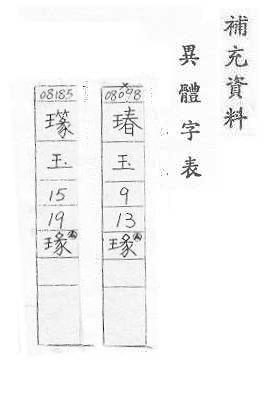 補充資料
異體字表
08098
瑃
玉
9
13
瑑
08185
玉
15
19
瑑